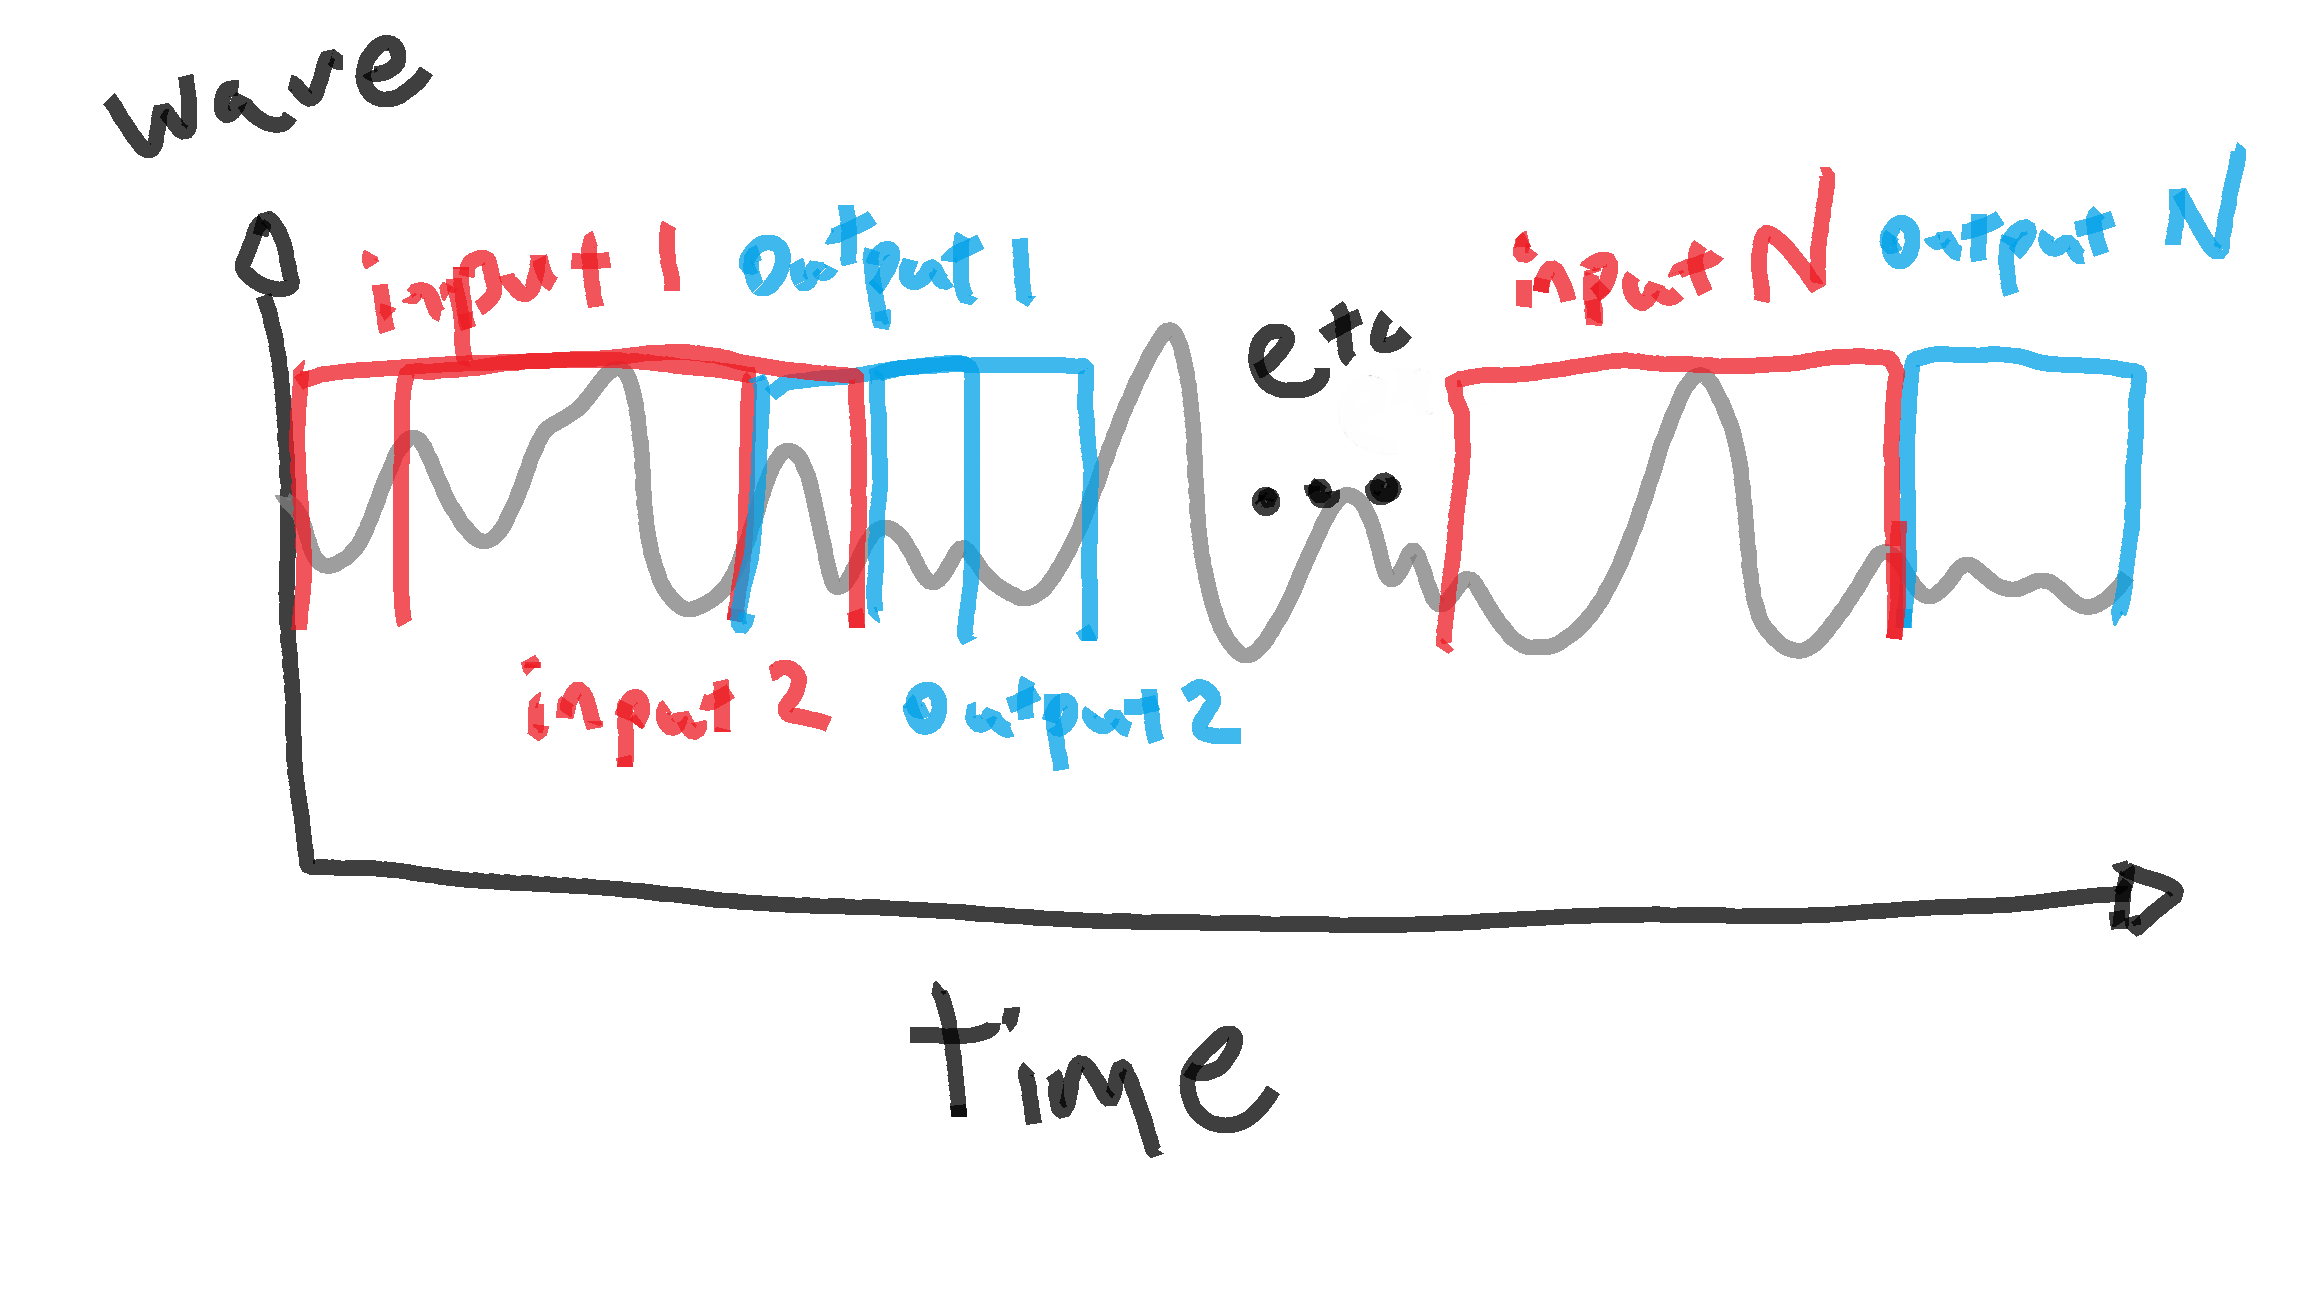 wave
input 1 output 1
etc
...
input N output N
input 2 output 2
time